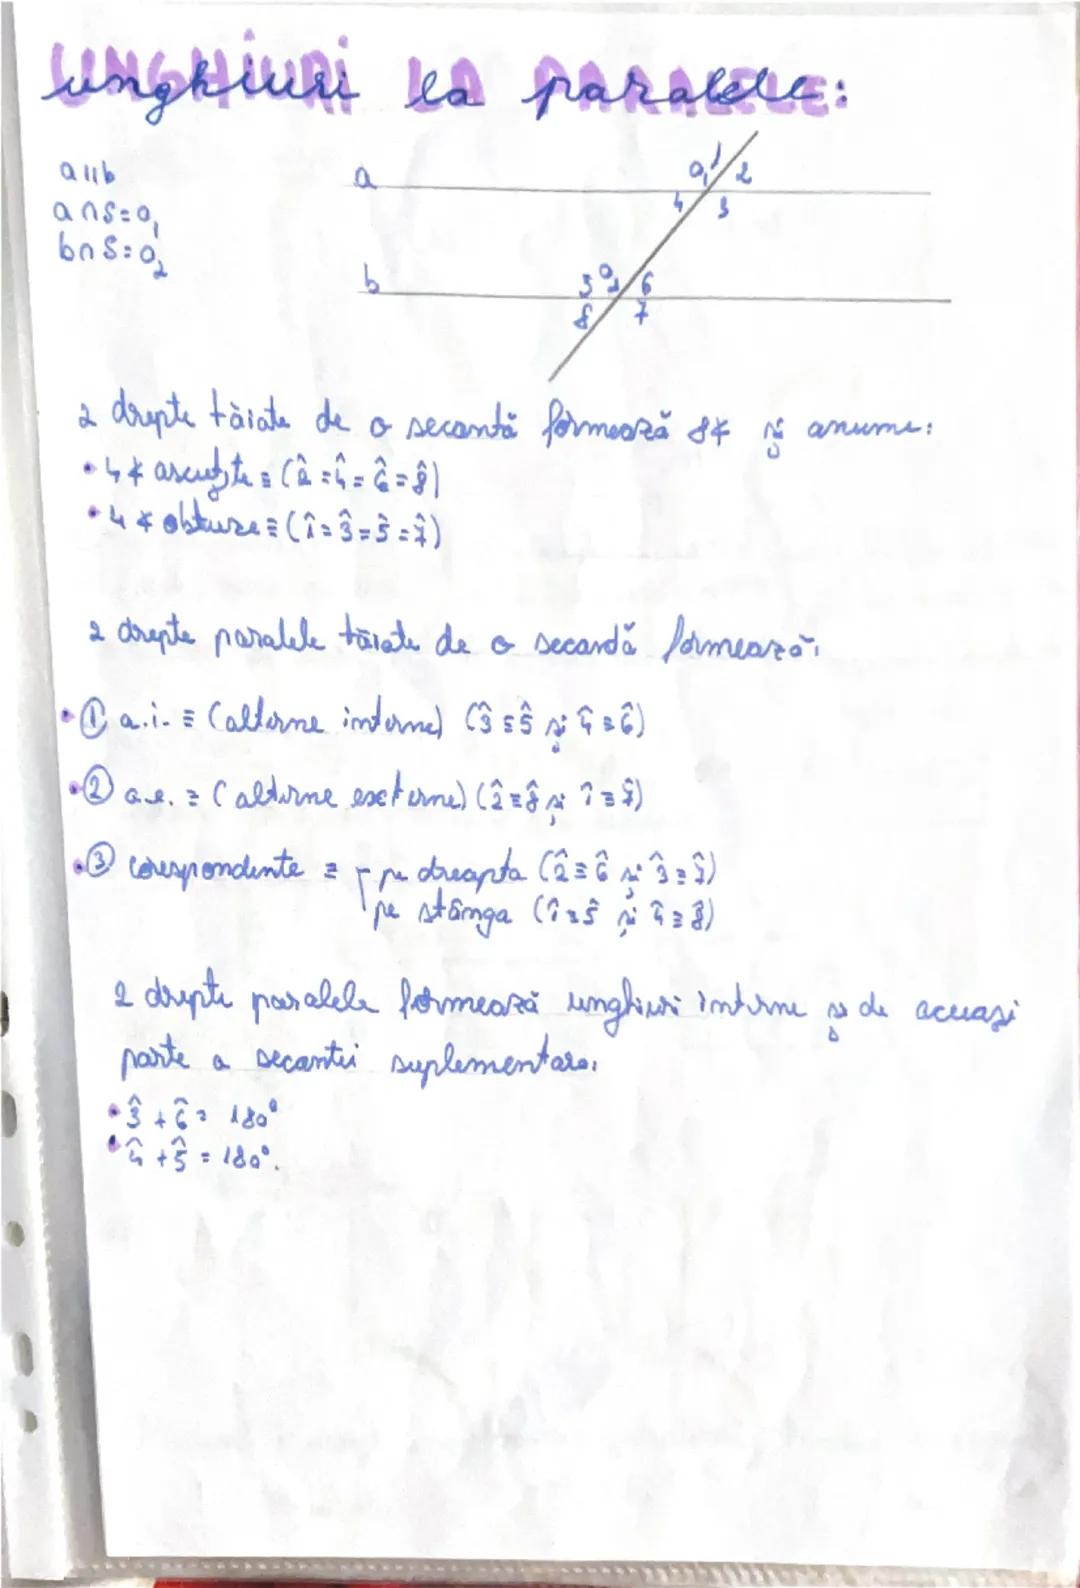 UNGHIURI LA PARALELE:
unghiuri la paralele:
a ıı b
a ∩ S = O₁
b ∩ S = O₂
a
O₁ 1 2
4 3
b
5 O₂ 6
8 7
2 drepte tăiate de o secantă formează 8∢ și anume:
• 4 ∢ ascuțite ≡ (2̂ = 4̂ = 6̂ = 8̂)
• 4 ∢ obtuze ≡ (1̂ = 3̂ = 5̂ = 7̂)
2 drepte paralele tăiate de o secandă formează:
• ① a.i. ≡ (alterne interne) (3̂ ≡ 5̂ și 4̂ ≡ 6̂)
• ② a.e. ≡ (alterne externe) (2̂ ≡ 8̂ și 1̂ ≡ 7̂)
• ③ corespondente ≡ - pe dreapta (2̂ ≡ 6̂ și 3̂ ≡ 7̂)
pe stânga (1̂ ≡ 5̂ și 4̂ ≡ 8̂)
2 drepte paralele formează unghiuri interne și de aceeași
parte a secantei suplementare:
• 3̂ + 6̂ = 180°
• 4̂ + 5̂ = 180°.